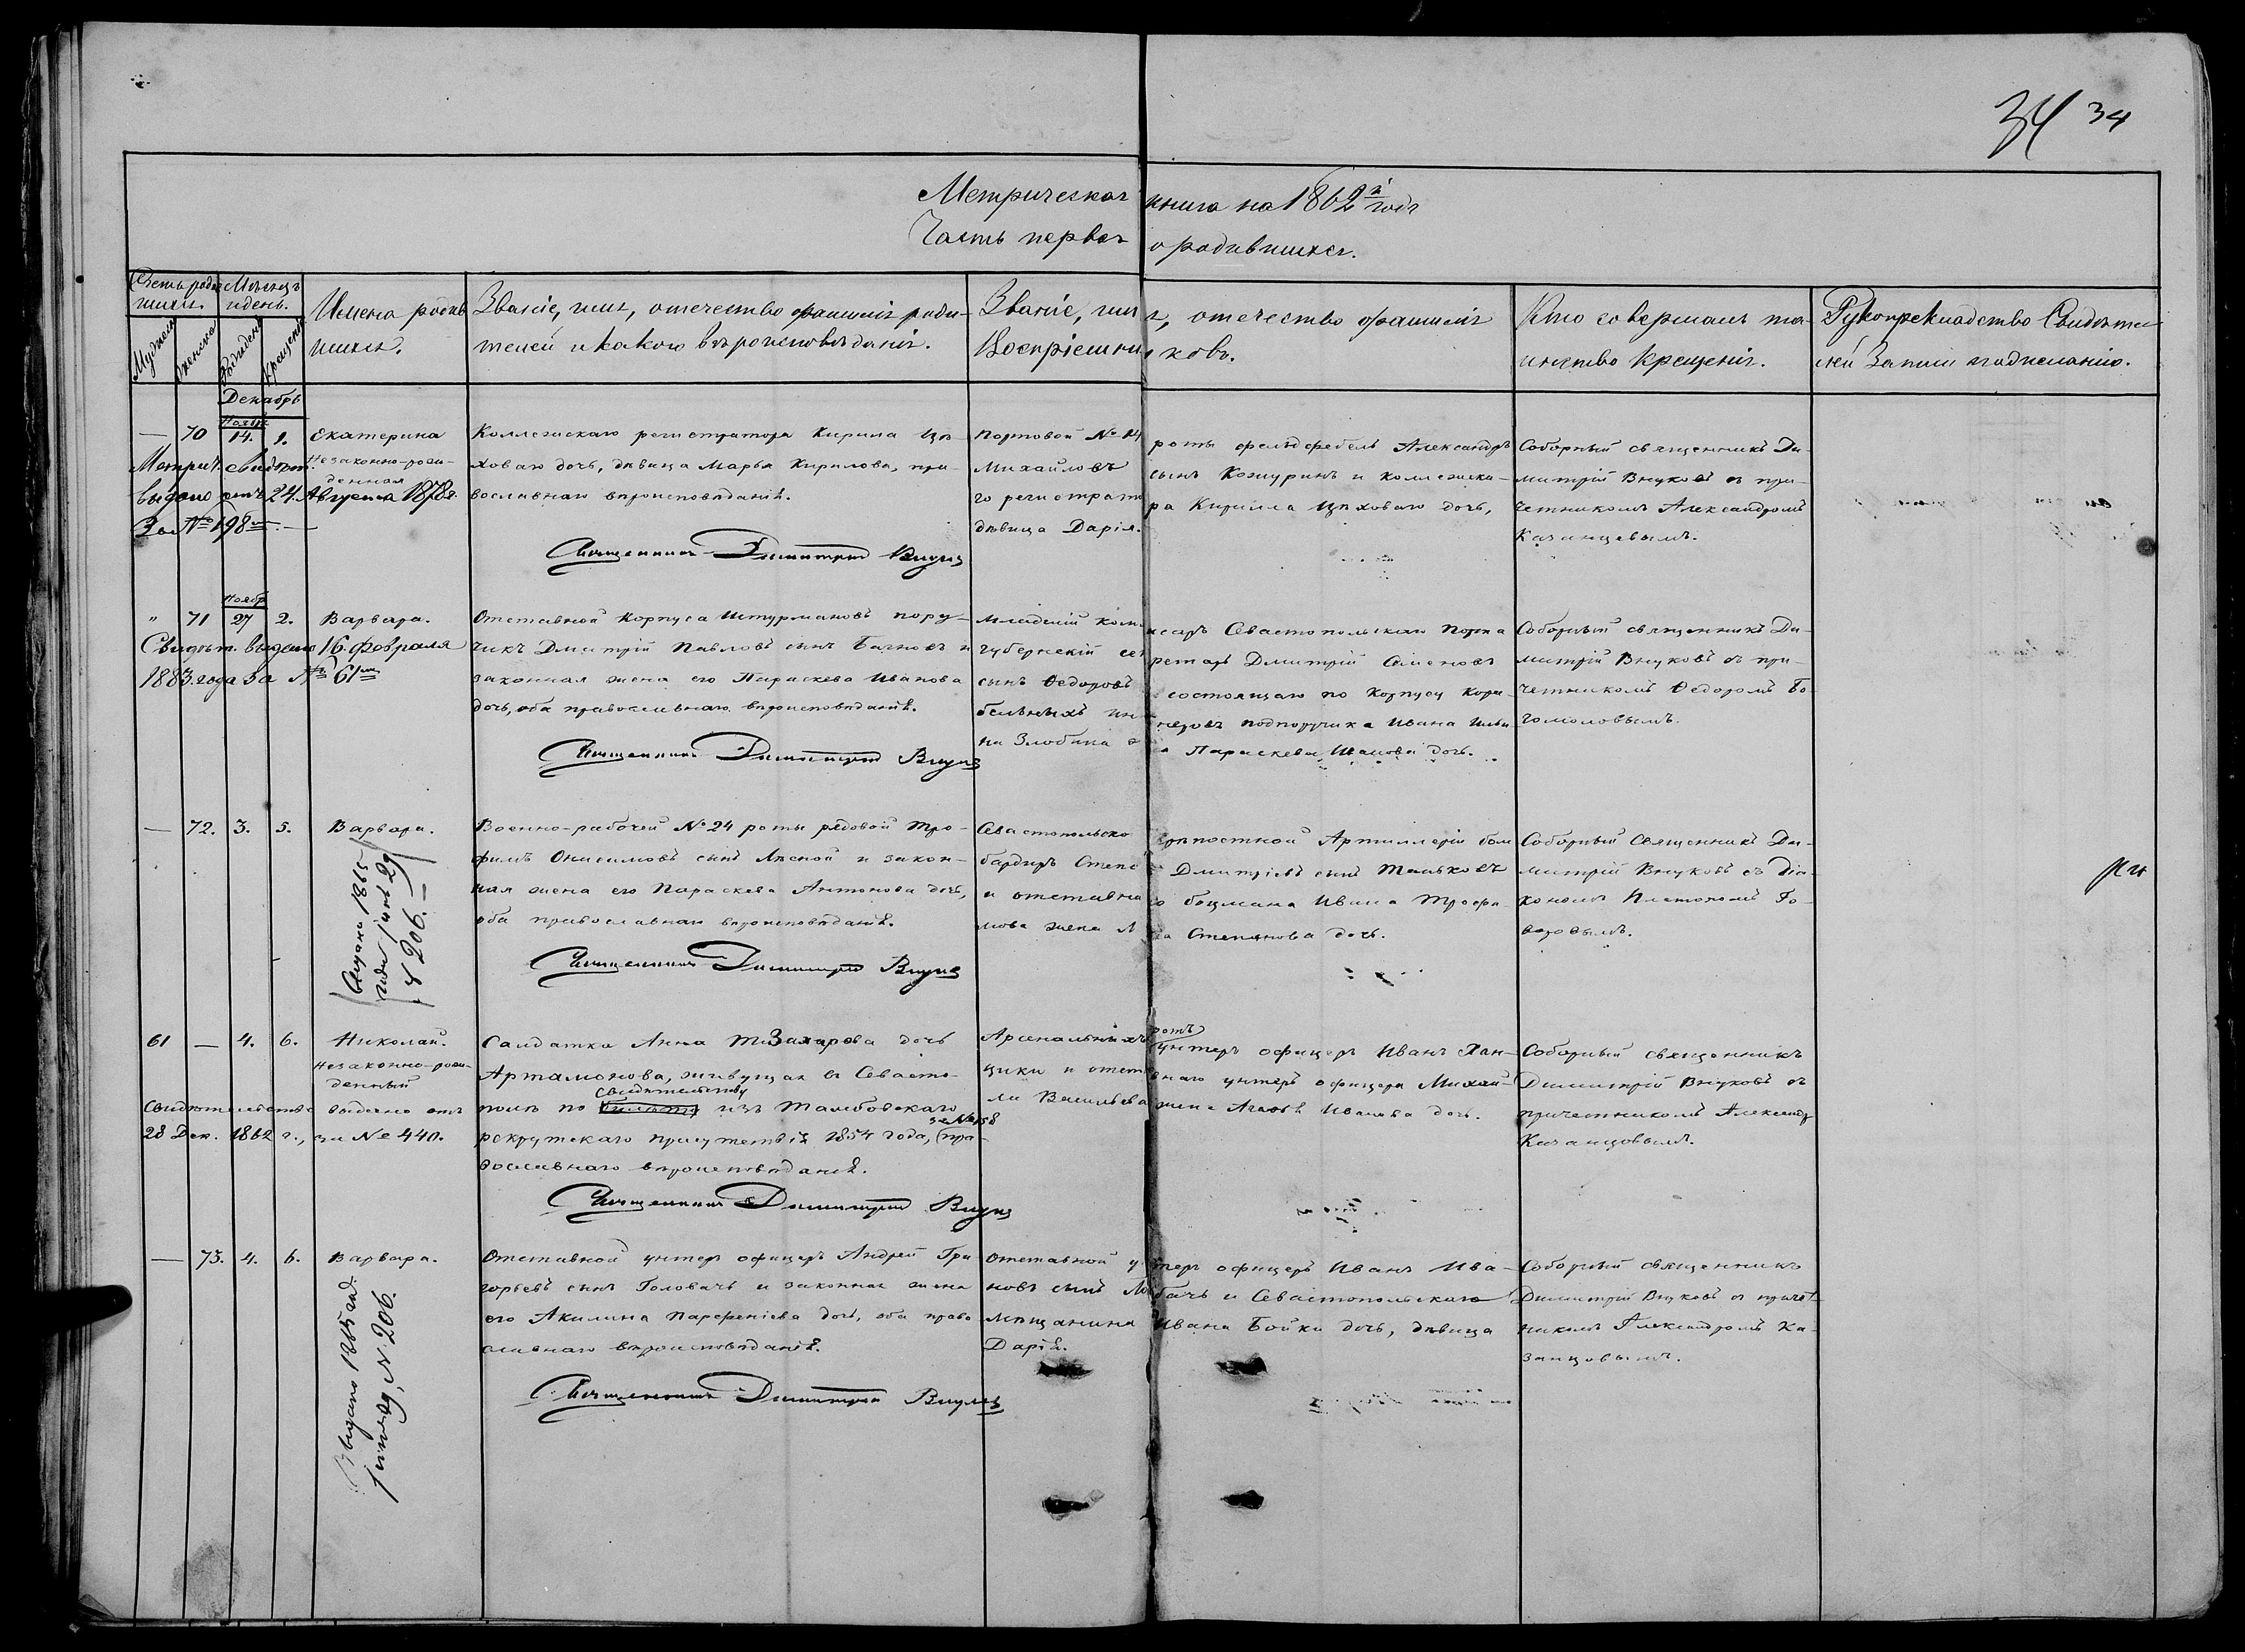 34 34
Метрическая книга на 1862й годъ
Часть первая о родившихся.
Счетъ родившихся.
Мужеска
женска
Мѣсяцъ и день.
Рожденія
крещенія
Имена родившихся.
Званіе, имя, отечество фамилія родителей и какого вѣроисповѣданія.
Званіе, имя, отечество фамилія
Воспріемниковъ.
Кто совершалъ таинство крещенія.
Рукоприкладство Свидѣтелей записи по желанію.
Декабрь
— 70 Ноябр 14. 1. Екатерина
Незаконно-рожденная
Метрич. свидѣт.
выдано отъ 24. Августа 1878 г.
За № 198м.—
Коллежскаго регистратора Кирила Цѣ-
ховаго дочь, дѣвица Марья Кирилова, пра-
вославнаго вѣроисповѣданія.
Священникъ Димитрій Внуковъ
Портовой № 14 роты фельдфебель Александръ
Михайловъ сынъ Кожуринъ и коллежска-
го регистратора Кирилла Цѣховаго дочь,
дѣвица Дарія.
Соборный священникъ Ди-
митрій Внуковъ съ при-
четникомъ Александромъ
Казанцевымъ.
" 71 Ноябр 27 2. Варвара.
Свидѣт. выдано 16. февраля
1883. года за № 61м
Отставной Корпуса Штурмановъ пору-
чикъ Дмитрій Павловъ сынъ Бачновъ и
законная жена его Параскева Иванова
дочь, оба православнаго вѣроисповѣданія.
Священникъ Димитрій Внуковъ
Младшій коммисаръ Севастопольскаго Порта
Губернскій секретарь Дмитрій Семеновъ
сынъ Федоровъ и состоящаго по Корпусу Кора-
бельныхъ инженеровъ подпоручика Ивана Ильи
на Злобина жена Параскева Иванова дочь.
Соборный священникъ Ди-
митрій Внуковъ съ при-
четникомъ Федоромъ Бо-
гомоловымъ.
— 72. 3. 5. Варвара.
Выдана 1865
года іюня 29
№ 206.—
Военно-рабочей № 24 роты рядовой Тро-
фимъ Онисимовъ сынъ Лѣсной и закон-
ная жена его Параскева Антонова дочь,
оба православнаго вѣроисповѣданія.
Священникъ Димитрій Внуковъ
Севастопольской крѣпостной Артиллеріи бом
бардиръ Степанъ Дмитріевъ сынъ Таньковъ
и отставнаго боцмана Ивана Трофи-
мова жена Степанова дочь.
Соборный Священникъ Ди-
митрій Внуковъ съ діа-
кономъ Платономъ Го-
воровымъ.
61 — 4. 6. Николай.
Незаконно-рож-
денный
Свидѣтельство выдано отъ
28 Дек. 1862 г., за № 440.
Салдатка Анна Захарова дочь
Артамонова, живущая въ Севасто-
полѣ по свидѣтельству изъ Тамбовскаго
рекрутскаго присутствія 1854 года, за № 158 пра-
вославнаго вѣроисповѣданія.
Священникъ Димитрій Внуковъ
Арсенальныхъ ротъ унтеръ офицеръ Иванъ Хан-
цики и отставнаго унтеръ офицера Михаи-
ла Васильева жена Агафья Иванова дочь.
Соборный священникъ
Димитрій Внуковъ съ
причетникомъ Александр
Казанцовымъ.
— 73. 4. 6. Варвара.
Выдано 1865 год.
іюня 29, № 206.
Отставной унтеръ офицеръ Андрей Гри-
горьевъ сынъ Головачъ и законная жена
его Акилина Парфеніева дочь, оба право
славнаго вѣроисповѣданія.
Священникъ Димитрій Внуковъ
Отставной унтеръ офицеръ Иванъ Ива-
новъ сынъ Лобачъ и Севастопольскаго
мѣщанина Ивана Бойки дочь, дѣвица
Дарія.
Соборный священникъ
Димитрій Внуковъ съ причет-
никомъ Александромъ Ка-
занцовымъ.